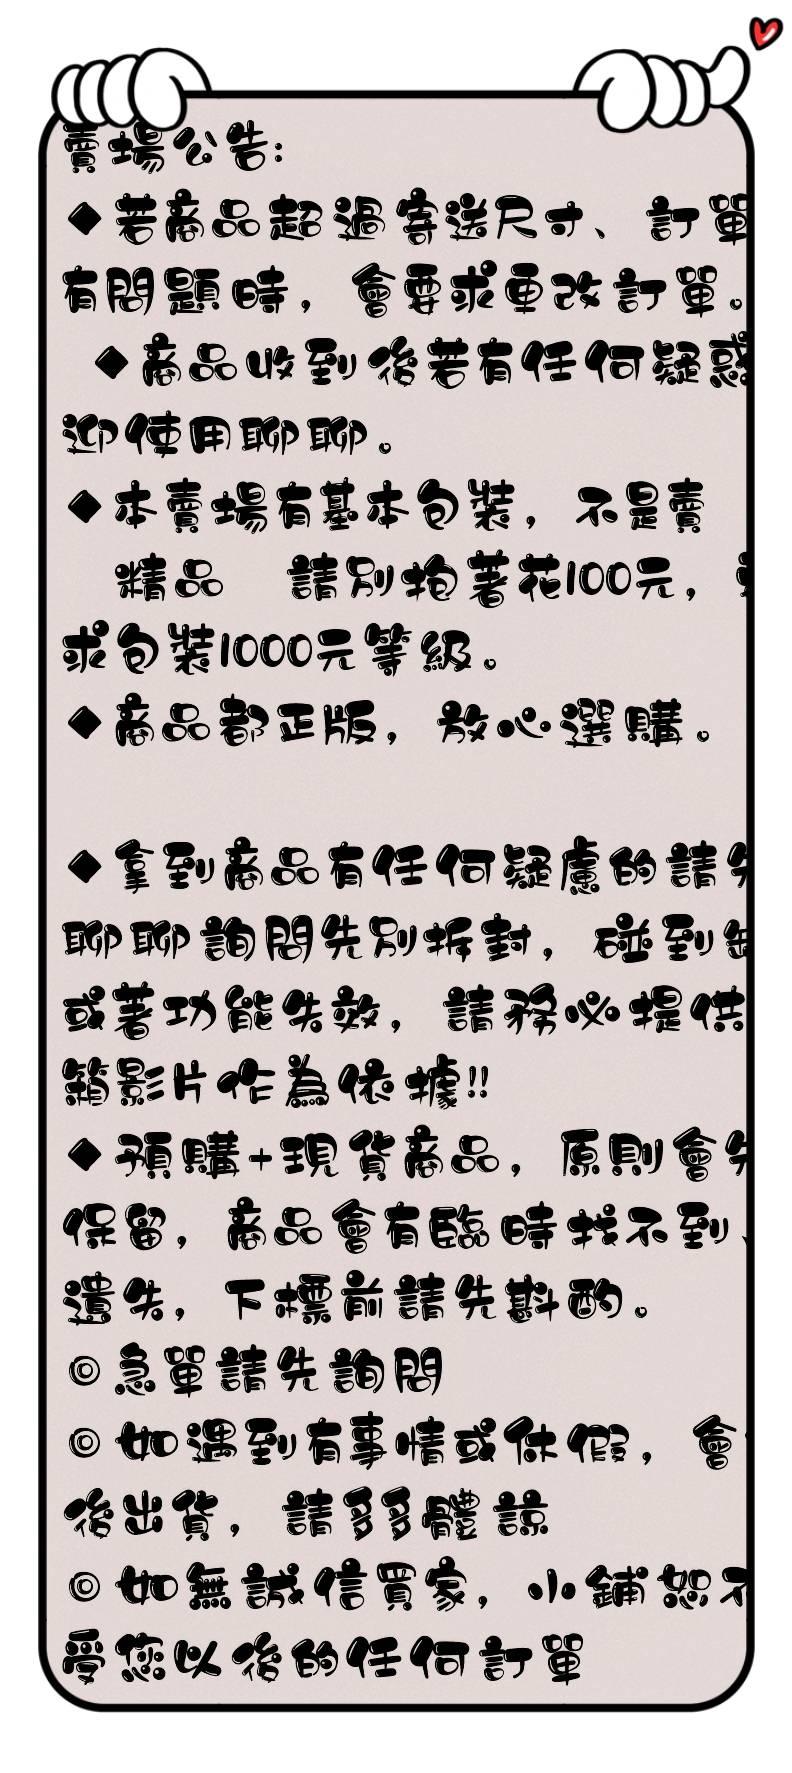 賣場公告:
◆若商品超過寄送尺寸、訂單
有問題時，會要求重改訂單。
◆商品收到後若有任何疑惑
迎使用聊聊。
◆本賣場有基本包裝，不是賣
精品 請別抱著花100元，
求包裝1000元等級。
◆商品都正版，放心選購。
◆拿到商品有任何疑慮的請先
聊聊詢問先別拆封，碰到缺
或著功能失效，請務必提供
箱影片作為依據!!
◆預購+現貨商品，原則會先
保留，商品會有臨時找不到、
遺失，下標前請先斟酌。
©急單請先詢問
©如遇到有事情或休假，會
後出貨，請多多體諒
©如無誠信買家，小鋪恕不
受您以後的任何訂單